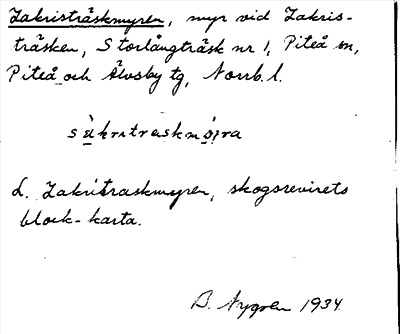 Zakristräskmyren, myr vid Zakris-
träsken, Storlångträsk nr 1, Piteå sn,
Piteå och Älvsby tg, Norrb. l.
sàkritraskmỳra
L. Zakritraskmyren, skogsrevirets
block-karta.
B. Nygren 1934